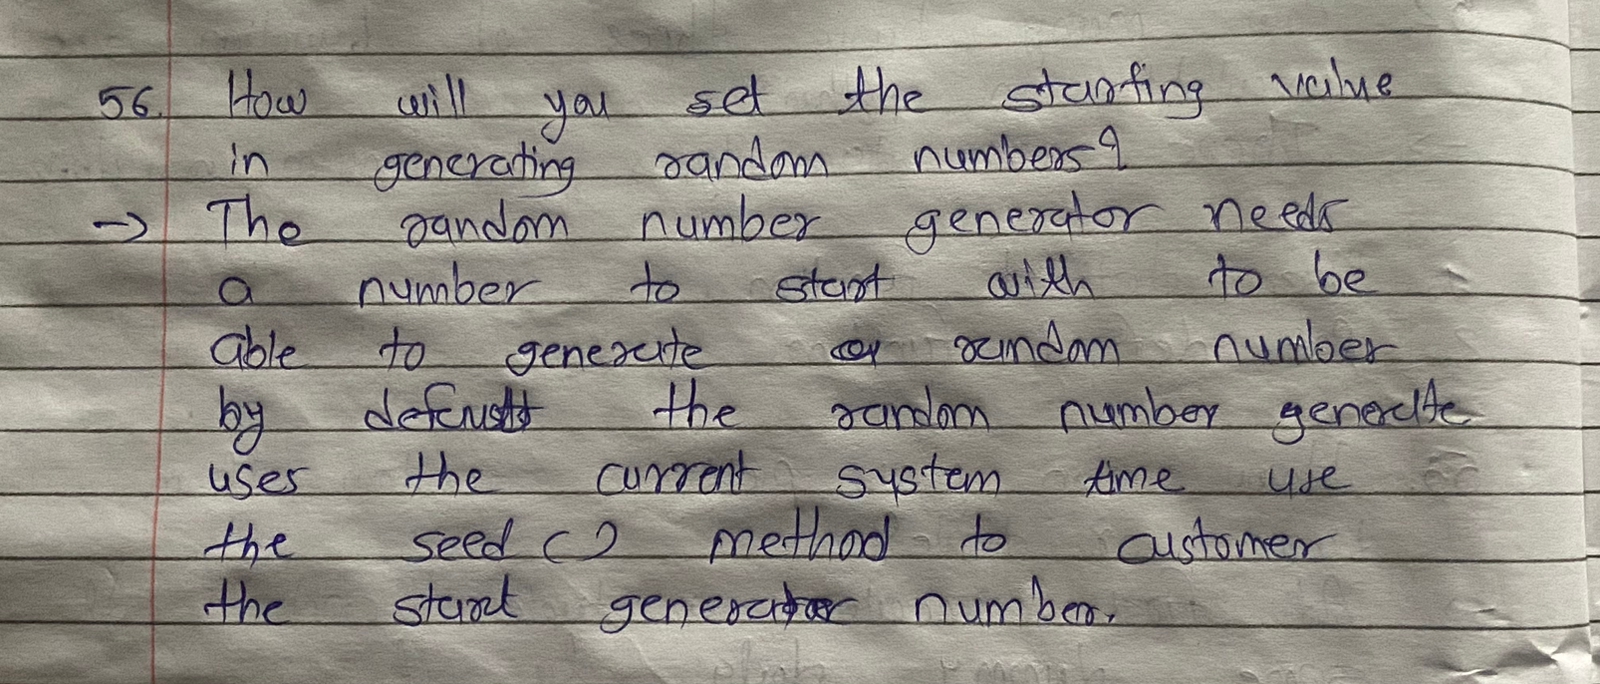 56. How will you set the starting value
in generating random numbers?
→ The random number generator needs
a number to start with to be
able to generate a random number
by default the random number generate
uses the current system time use
the seed() method to customer
the start generator number.